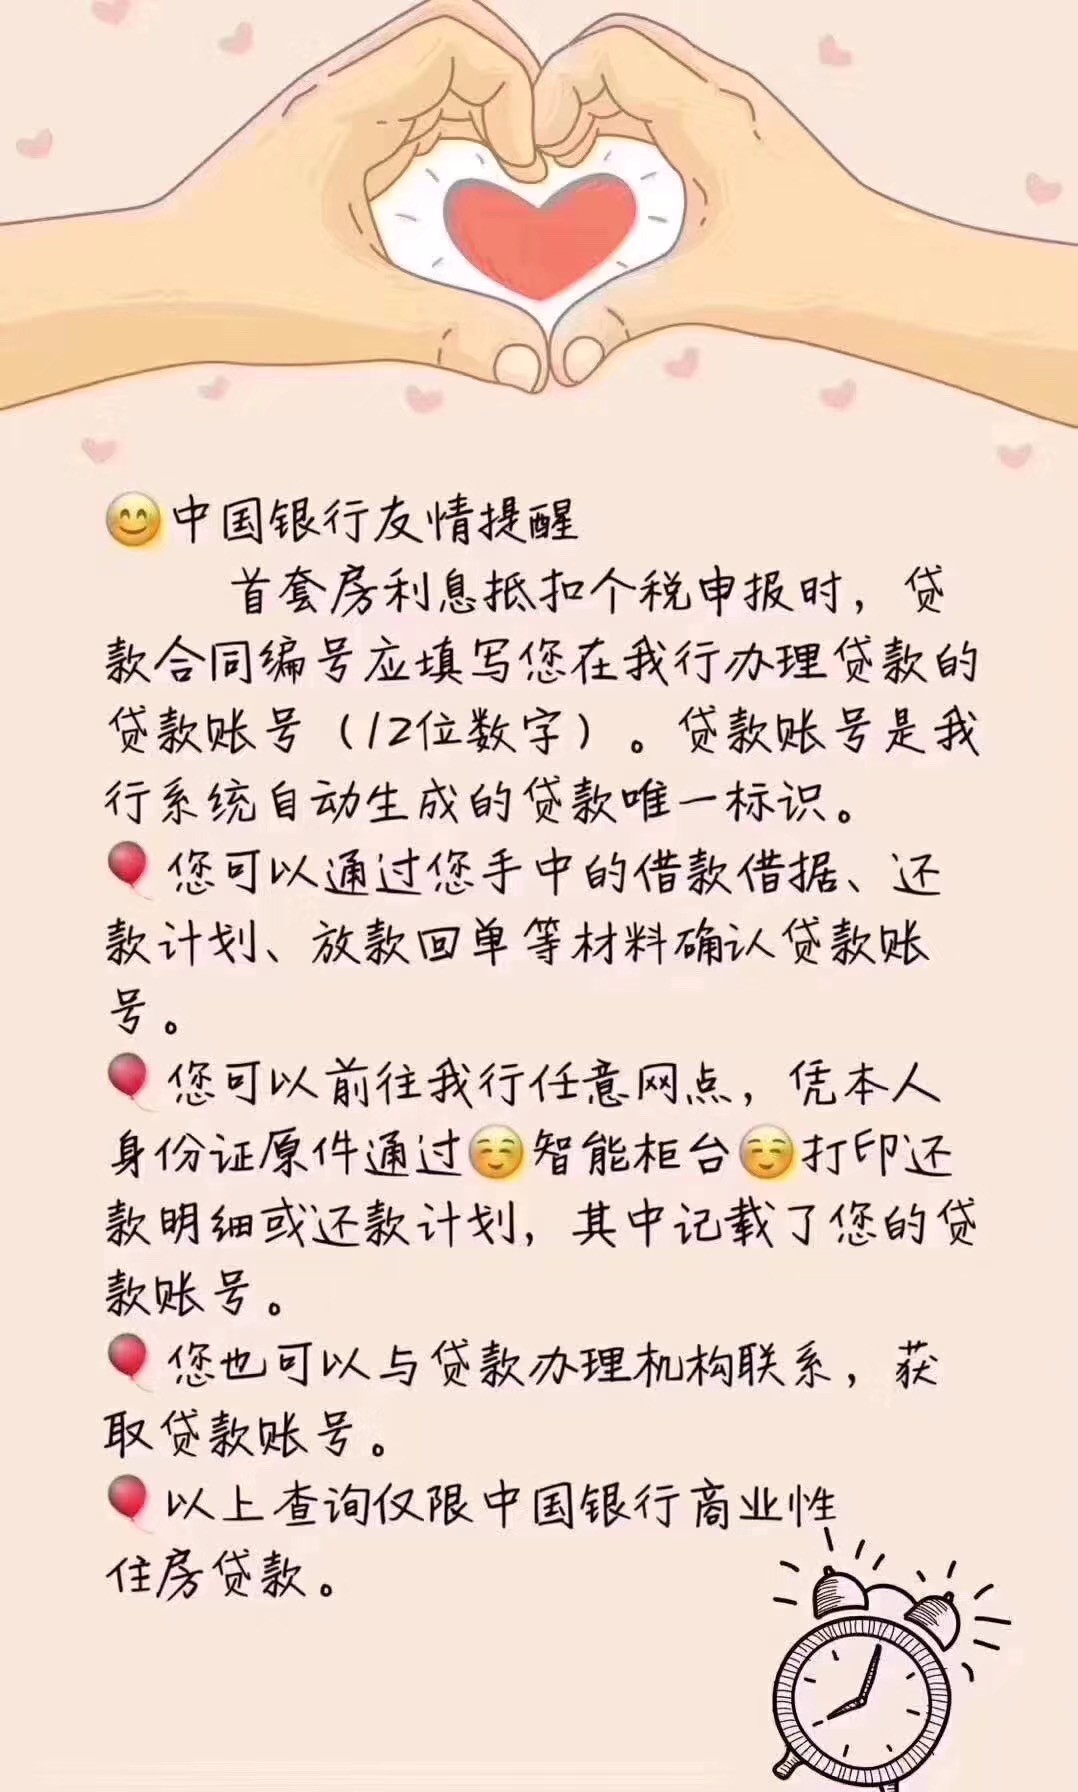 😊中国银行友情提醒
首套房利息抵扣个税申报时，贷
款合同编号应填写您在我行办理贷款的
贷款账号（12位数字）。贷款账号是我
行系统自动生成的贷款唯一标识。
🎈您可以通过您手中的借款借据、还
款计划、放款回单等材料确认贷款账
号。
🎈您可以前往我行任意网点，凭本人
身份证原件通过☺️智能柜台☺️打印还
款明细或还款计划，其中记载了您的贷
款账号。
🎈您也可以与贷款办理机构联系，获
取贷款账号。
🎈以上查询仅限中国银行商业性
住房贷款。